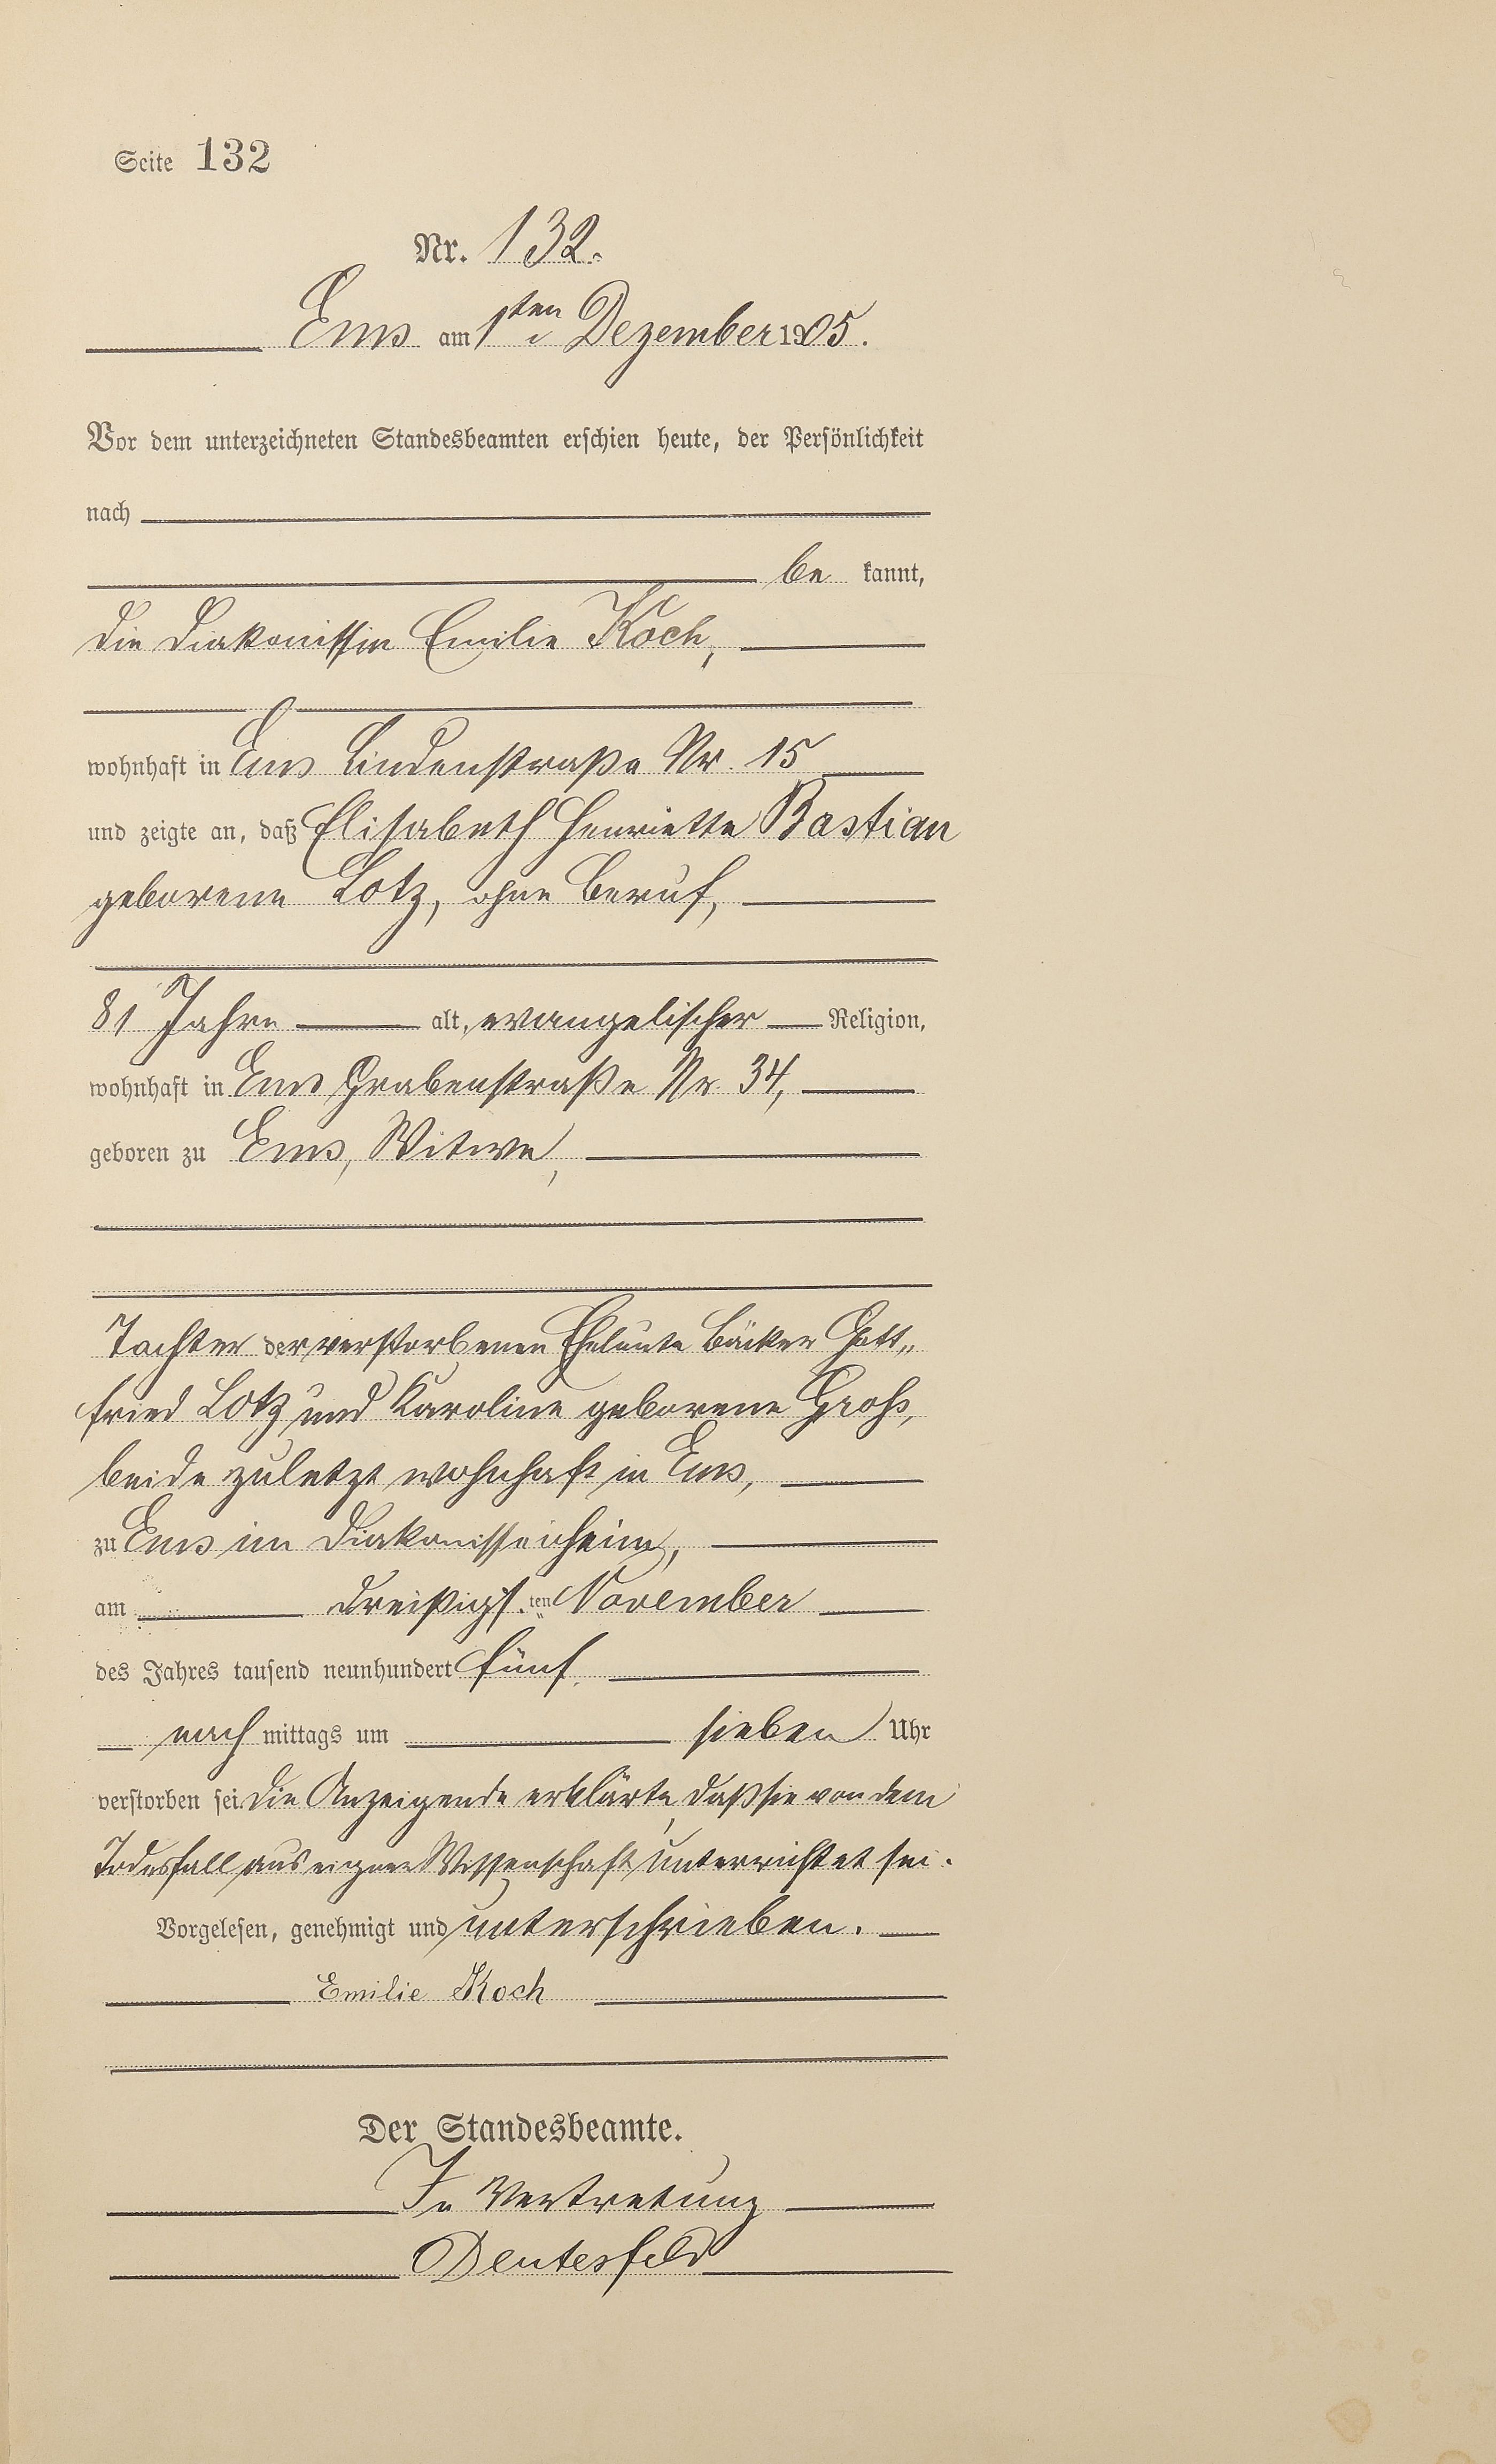 Seite 132
Nr. 132.
Ems am 1ten Dezember 1905.
Vor dem unterzeichneten Standesbeamten erschien heute, der Persönlichkeit
nach
be kannt,
die Diakonissin Emilie Koch,
wohnhaft in Ems Lindenstraße Nr. 15
und zeigte an, daß Elisabeth Henriette Bastian
geborene Lotz, ohne Beruf,
81 Jahre alt, evangelischer Religion,
wohnhaft in Ems Grabenstraße Nr. 34,
geboren zu Ems, Witwe,
Tochter der verstorbenen Eheleute Bäcker Gott„
fried Lotz und Karoline geborene Groß,
beide zuletzt wohnhaft in Ems,
zu Ems im Diakonissenheim,
am dreißigsten November
des Jahres tausend neunhundert fünf
nach mittags um sieben Uhr
verstorben sei. Die Anzeigende erklärte, daß sie von dem
Todesfall aus eigner Wissenschaft unterrichtet sei.
Vorgelesen, genehmigt und unterschrieben.
Emilie Koch
Der Standesbeamte.
In Vertretung
Deutesfeld